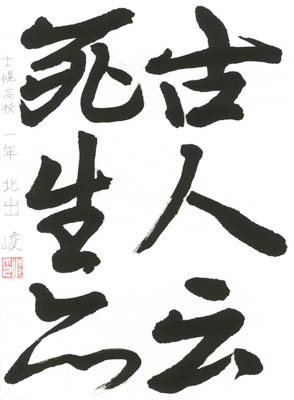 古人云
死生亦
士幌高校 一年 北出 崚